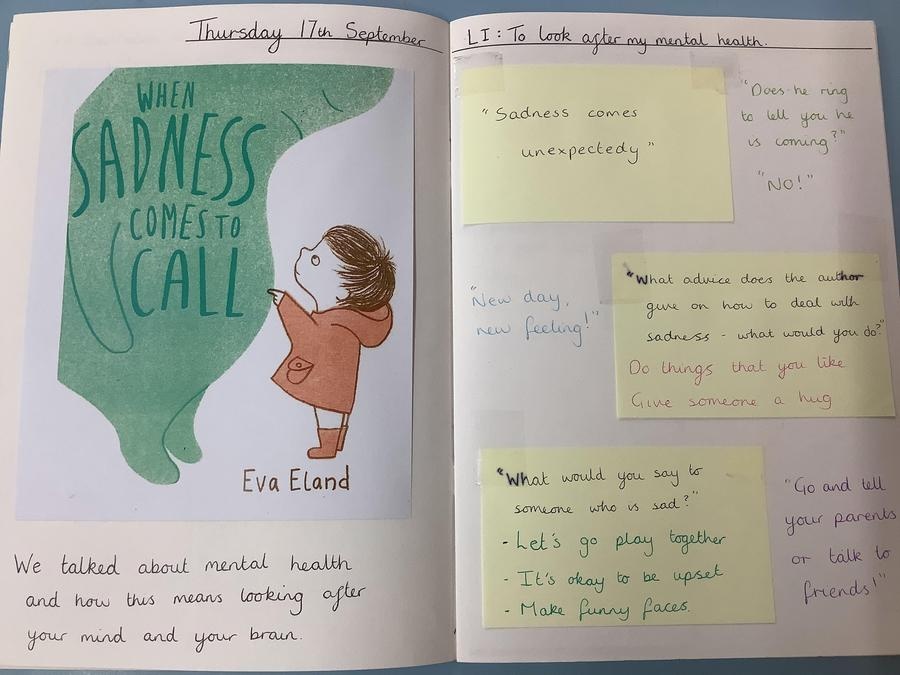 Thursday 17th September
WHEN
SADNESS
COMES TO
CALL
Eva Eland
We talked about mental health
and how this means looking after
your mind and your brain.
LI: To look after my mental health.
"Sadness comes
unexpectedy"
"Does he ring
to tell you he
is coming?"
"No!"
"New day,
new feeling!"
"What advice does the author
give on how to deal with
sadness - what would you do?"
Do things that you like
Give someone a hug
"What would you say to
someone who is sad?"
- Let's go play together
- It's okay to be upset
- Make funny faces.
"Go and tell
your parents
or talk to
friends!"